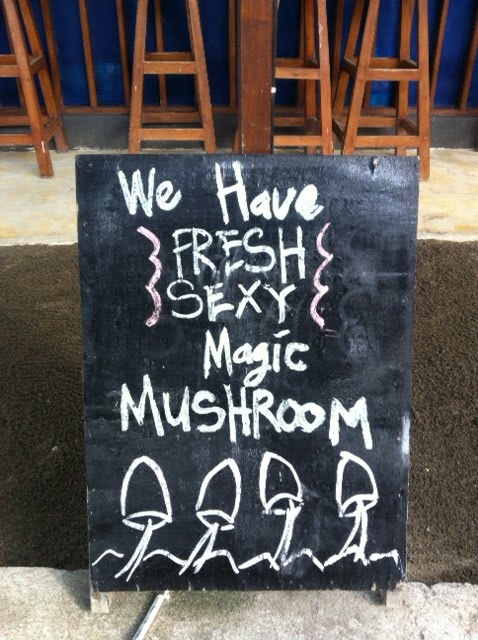 We Have
FRESH
SEXY
Magic
MUSHROOM